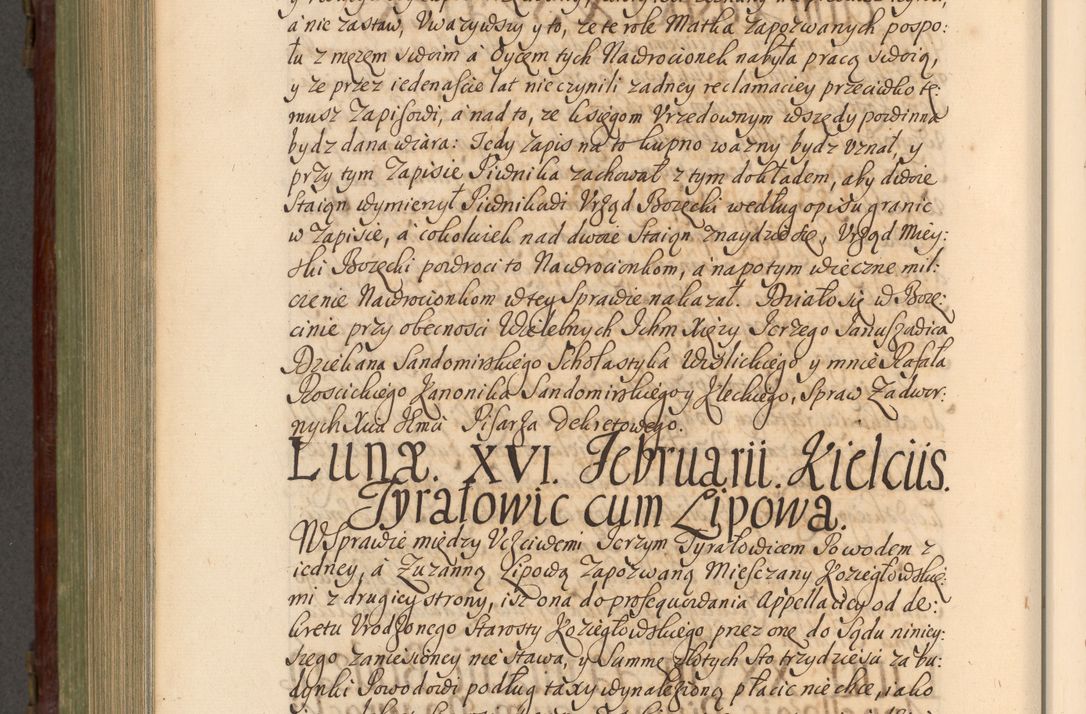 a nie zastaw, Uwazywszy y to, ze te role Matka Zapozwanych pospo:
łu z męzem swoim a Oycem tych Nawrocionek nabyła pracą swoią,
y ze przez iedenascie lat nie czynili zadney reclamaciey przeciwko te:
musz Zapisowi, a nad to, ze księgom Vrzędownym wszędy powinna
bydz dana wiara: Tedy Zapis na to kupno wazny bydz Vznał, y
przy tym Zapisie Piwnika zachował z tym dokładem, aby dwoie
Staian wymienył Piwnikowi Vrząd Bozęcki według opisu granic
w Zapisie, a cokolwiek nad dwoie Staian znaydzie się, Vrząd Miey:
ski Bozęcki powroci to Nawrocionkom, a napotym wieczne mil:
czenie Nawrocionkom w tey Sprawie nakazał. Działo się w Bozę:
cinie przy obecnosci Wielebnych Ichm Xięzy Ierzego Ianuszowica
Dziekana Sandomirskiego Scholastyka Wislickiego y mnie Rafała
Roscickiego Kanonika Sandomirskiego y Kleckiego, Spraw Zadwor:
nych Xcia Jmci Pisarza Dekretowego.
Lunæ. XVI. Februarii. Kielciis.
Tyrałowic cum Lipowa.
W Sprawie między Vczciwemi Ierzym Tyrałowicem Powodem z
iedney, a Zuzanną Lipową Zapozwaną Miesczany Koziegłowskie:
mi z drugiey strony, isz ona do prosequowania Appellaciey od de:
kretu Vrodzonego Starosty Koziegłowskiego przez onę do Sądu niniey:
szego zaniesioney nie stawa, y Summę złotych sto trzydziesci za bu:
dynki Powodowi podług taxy wynalezioną płacic nie chce, iako